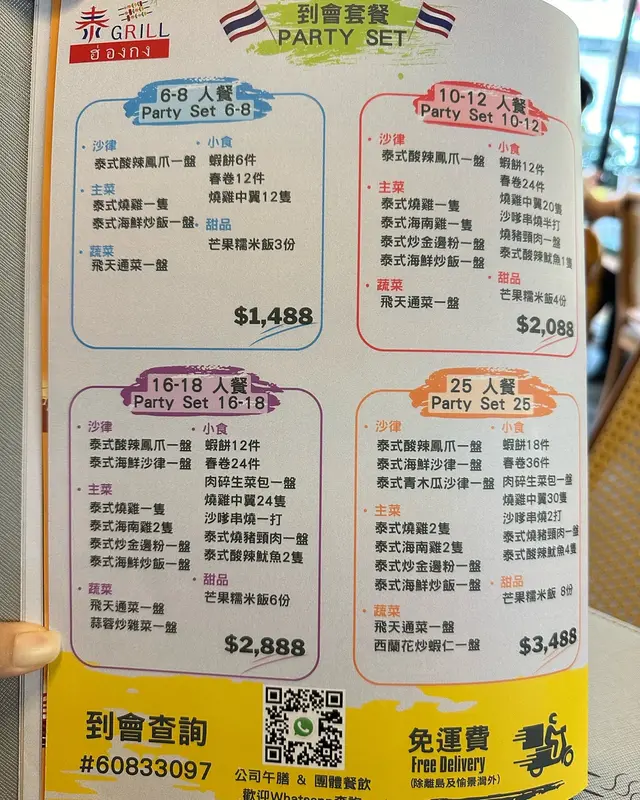 泰 GRILL
ฮ่องกง
到會套餐
PARTY SET
6-8 人餐
Party Set 6-8
• 沙律
泰式酸辣鳳爪一盤
• 主菜
泰式燒雞一隻
泰式海鮮炒飯一盤
• 蔬菜
飛天通菜一盤
• 小食
蝦餅6件
春卷12件
燒雞中翼12隻
• 甜品
芒果糯米飯3份
$1,488
10-12 人餐
Party Set 10-12
• 沙律
泰式酸辣鳳爪一盤
• 主菜
泰式燒雞一隻
泰式海南雞一隻
泰式炒金邊粉一盤
泰式海鮮炒飯一盤
• 蔬菜
飛天通菜一盤
• 小食
蝦餅12件
春卷24件
燒雞中翼20隻
沙嗲串燒半打
燒豬頸肉一盤
泰式酸辣魷魚1隻
• 甜品
芒果糯米飯4份
$2,088
16-18 人餐
Party Set 16-18
• 沙律
泰式酸辣鳳爪一盤
泰式海鮮沙律一盤
• 主菜
泰式燒雞一隻
泰式海南雞2隻
泰式炒金邊粉一盤
泰式海鮮炒飯一盤
• 蔬菜
飛天通菜一盤
蒜蓉炒雜菜一盤
• 小食
蝦餅12件
春卷24件
肉碎生菜包一盤
燒雞中翼24隻
沙嗲串燒一打
泰式燒豬頸肉一盤
泰式酸辣魷魚2隻
• 甜品
芒果糯米飯6份
$2,888
25 人餐
Party Set 25
• 沙律
泰式酸辣鳳爪一盤
泰式海鮮沙律一盤
泰式青木瓜沙律一盤
• 主菜
泰式燒雞2隻
泰式海南雞2隻
泰式炒金邊粉一盤
泰式海鮮炒飯一盤
• 蔬菜
飛天通菜一盤
西蘭花炒蝦仁一盤
• 小食
蝦餅18件
春卷36件
肉碎生菜包一盤
燒雞中翼30隻
沙嗲串燒2打
泰式燒豬頸肉一盤
泰式酸辣魷魚4隻
• 甜品
芒果糯米飯 8份
$3,488
到會查詢
#60833097
公司午膳 & 團體餐飲
歡迎Whatsapp查詢
免運費
Free Delivery
(除離島及愉景灣外)